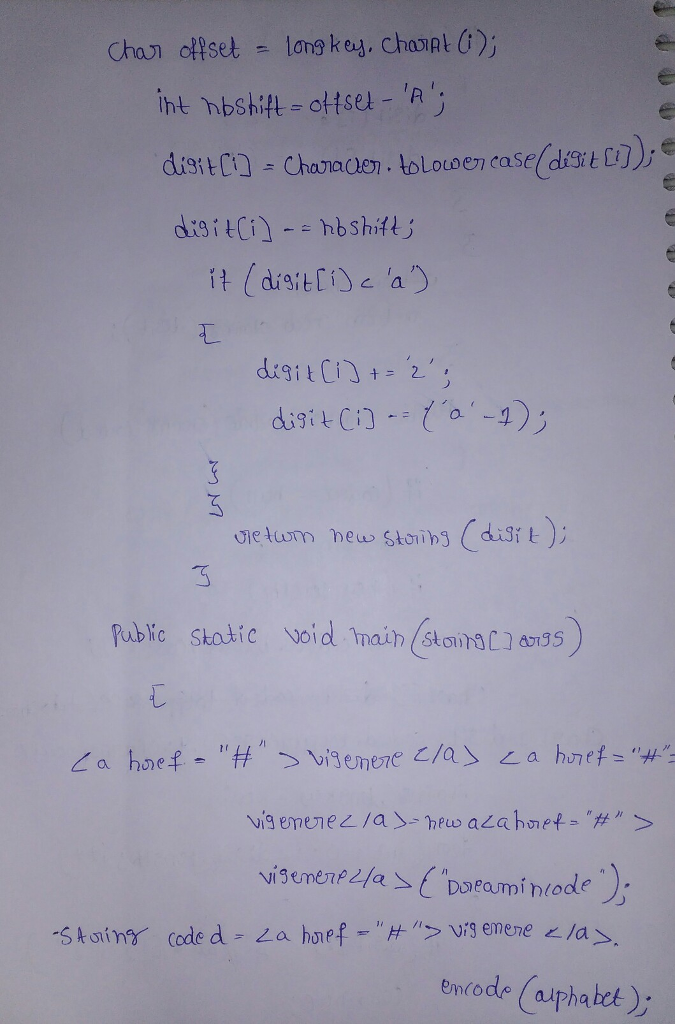 Char offset = longkey. charAt (i);
int nbshift = offset - 'A';
digit[i] = Character. toLowercase(digit[i]);
digit[i] -= nbshift;
if (digit[i] < 'a')
{
digit[i] += 'z';
digit[i] -= ('a' -1);
}
}
return new string (digit);
}
Public static void main (string[] args)
{
<a href = "#" > vigenere </a> <a href = "#"=
vigenere </a> = new a<a href = "#" >
vigenere</a> ("Dreamincode");
String coded = <a href = "#"> vigenere </a>.
encode (alphabet);